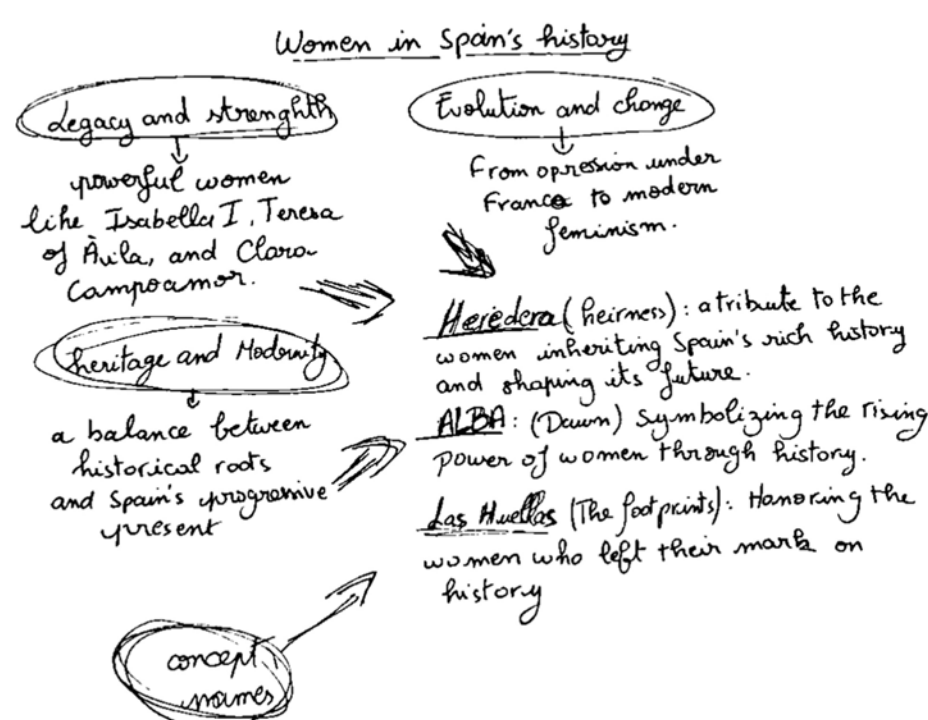 Women in Spain's history
Legacy and strenghth
powerful women
like Isabella I, Teresa
of Àvila, and Clara
Campoamor.
heritage and Modernity
a balance between
historical roots
and Spain's progressive
present
Evolution and change
From opression under
Franco to modern
feminism.
Heredera (heirness): a tribute to the
women inheriting Spain's rich history
and shaping its future.
ALBA: (Dawn) Symbolizing the rising
power of women through history.
Las Huellas (The footprints): Honoring the
women who left their mark on
history
concept
names